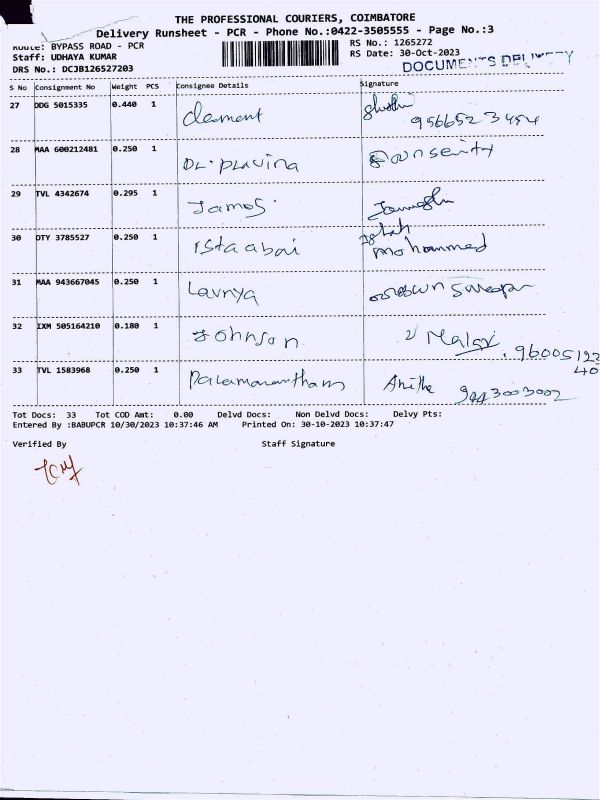 THE PROFESSIONAL COURIERS, COIMBATORE
Delivery Runsheet - PCR - Phone No.:0422-3505555 - Page No.:3
Route: BYPASS ROAD - PCR
RS No.: 1265272
Staff: UDHAYA KUMAR
RS Date: 30-Oct-2023
DOCUMENTS DELIVERY
DRS No.: DCJB126527203
S No Consignment No Weight PCS Consignee Details Signature
27 DDG 5015335 0.440 1 clement
9566523454
28 MAA 600212481 0.250 1 Dr. Plavina
29 TVL 4342674 0.295 1 James.
30 OTY 3785527 0.250 1 Istaabai mohammed
31 MAA 943667045 0.250 1 Lavnya
32 IXM 505164210 0.180 1 Johnson
33 TVL 1583968 0.250 1 Anitha 9443003002
Tot Docs: 33 Tot COD Amt: 0.00 Delvd Docs: Non Delvd Docs: Delvy Pts:
Entered By :BABUPCR 10/30/2023 10:37:46 AM Printed On: 30-10-2023 10:37:47
Verified By Staff Signature